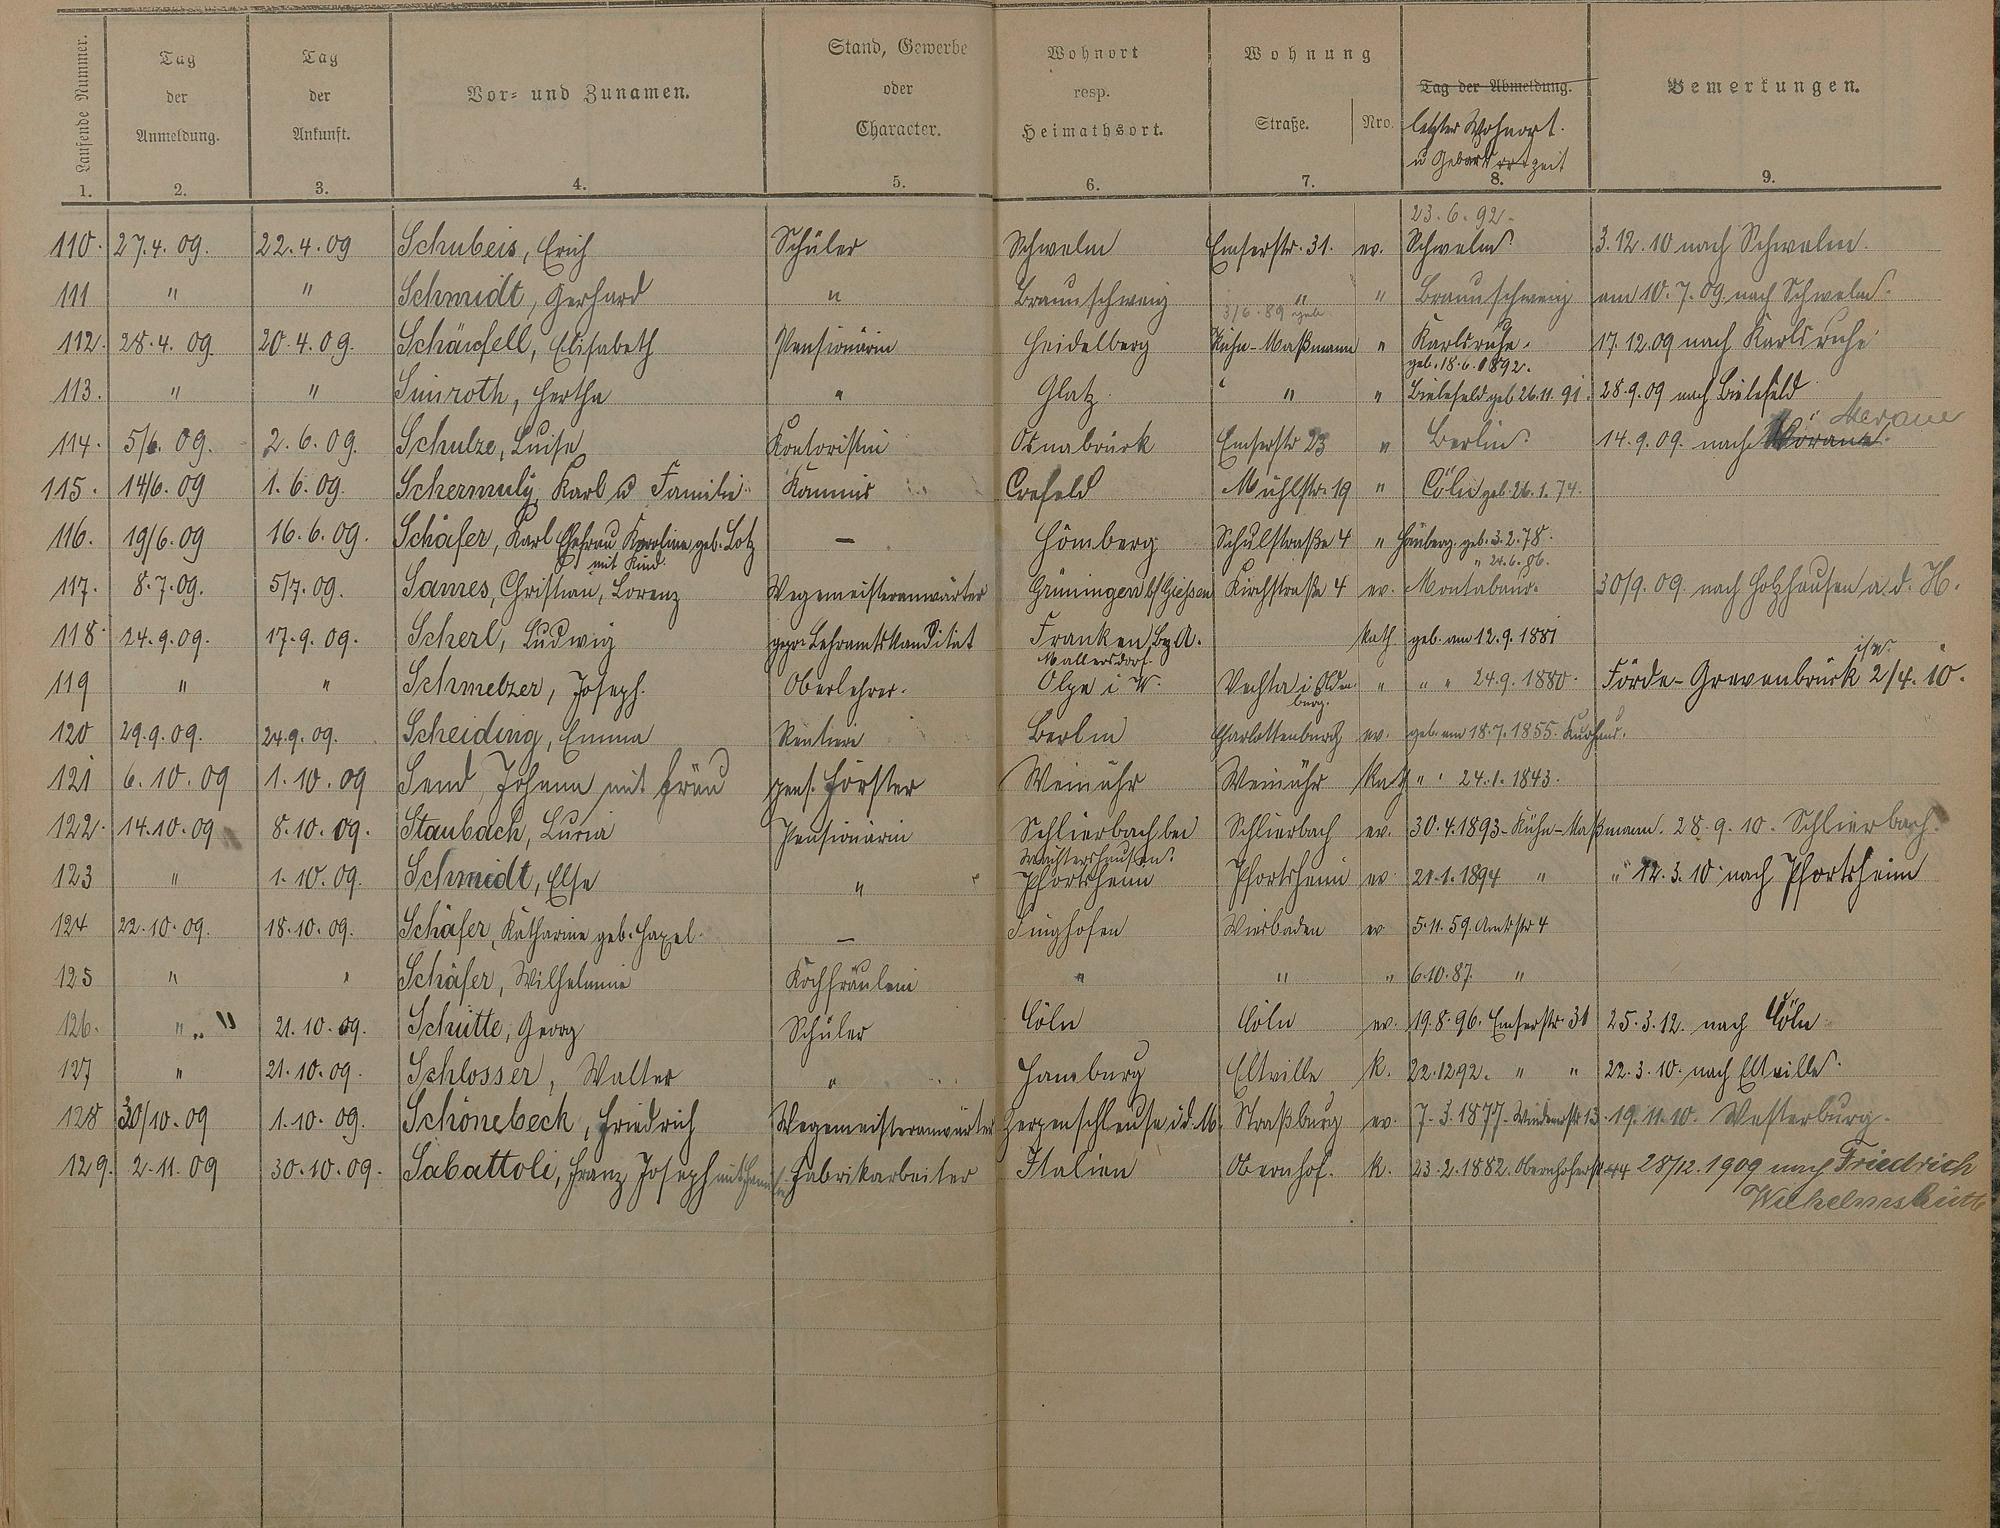 Laufende Nummer. Tag der Anmeldung. Tag der Ankunft. Vor- und Zunamen. Stand, Gewerbe oder Character. Wohnort resp. Heimathsort. Wohnung Straße. Nro. Tag der Abmeldung. Bemerkungen.
letzter Wohnort.
u Geburtszeit
1. 2. 3. 4. 5. 6. 7. 8. 9.
23.6.92.
110. 27.4.09. 22.4.09 Schubeis, Erich Schüler Schwelm Emserstr. 31. ev. Schwelm 3.12.10 nach Schwelm.
111 " " Schmidt, Gerhard " Braunschweig " " Braunschweig am 10.7.09 nach Schwelm.
3/6.89 geb.
112. 28.4.09. 20.4.09. Schärfell, Elisabeth Pensionärin Heidelberg Kuhn-Maßmann " Karlsruhe. 17.12.09 nach Karlsruhe
geb. 18.6.1892.
113. " " Simroth, Hertha " Glatz " " " Bielefeld geb 26.11.91. 28.9.09 nach Bielefeld
Merane
114. 5/6.09. 2.6.09. Schulze, Luise Kontoristin Osnabrück Emserstr 23 " Berlin. 14.9.09. nach
115. 14/6.09 1.6.09. Schermuly, Karl u Familie Kommis Crefeld Mühlstr. 19 " Cöln geb. 26.1.74.
116. 19/6.09 16.6.09. Schäfer, Karl Ehefrau Karoline geb. Lotz — Hömberg Schulstraße 4 " Hömberg geb. 3.2.78.
mit Kind. " 24.6.86.
117. 8.7.09. 5/7.09. Sames, Christian, Lorenz Wegemeisteranwärter Grüningen b/Giessen Kirchstraße 4 ev. Montabaur. 30/9.09. nach Holzhausen a.d.H.
118. 24.9.09. 17.9.09. Scherl, Ludwig gepr. Lehramtskanditat Franken, Bz.A. Kath geb. am 12.9.1881
Mallersdorf. i/W.
119 " " Schmelzer, Joseph. Oberlehrer. Olpe i W. Vechta i Olden " " " 24.9.1880. Förde-Grevenbrück 2/4.10.
burg.
120 29.9.09. 24.9.09. Scheiding, Emma Rentiere Berlin Charlottenburg ev. geb. am 18.7.1855. Kurhaus.
121 6.10.09 1.10.09 Send, Johann mit Frau pens. Förster Weinähr Weinähr Kath " " 24.1.1843.
122. 14.10.09 8.10.09. Staubach, Luria Pensionärin Schlierbach bei Schlierbach ev. 30.4.1893- Kühn-Maßmann. 28.9.10. Schlierbach.
Wächtersbach.
123 " 1.10.09. Schmidt, Else " Pfortsheim Pfortsheim ev 21.1.1894 " " 12.3.10 nach Pfortsheim
124 22.10.09. 18.10.09. Schäfer, Katharine geb. Hazel. — Singhofen Wiesbaden ev 5.11.59. Amtsstr 4
125 " " Schäfer, Wilhelmine Kochfräulein " " " 6.10.87. "
126. " " 21.10.09. Schütte, Georg Schüler Cöln Cöln ev. 19.8.96. Emserstr. 31 25.3.12. nach Cöln
127 " 21.10.09. Schlosser, Walter " Hamburg Eltville K. 22.12.92. " " 22.3.10. nach Eltville.
128 30/10.09 1.10.09. Schönebeck, Friedrich Wegemeisteranwärter Zerpenschleuse i.d.M. Straßburg ev. 7.3.1877. Windenerstr 13. 19.11.10. Westerburg.
129. 2.11.09 30.10.09. Sabattoli, Franz Joseph mit Familie Fabrikarbeiter Italien Obernhof. K. 23.2.1882. Obernhoferstr 44 28/12.1909 nach Friedrich
Wilhelmshütte